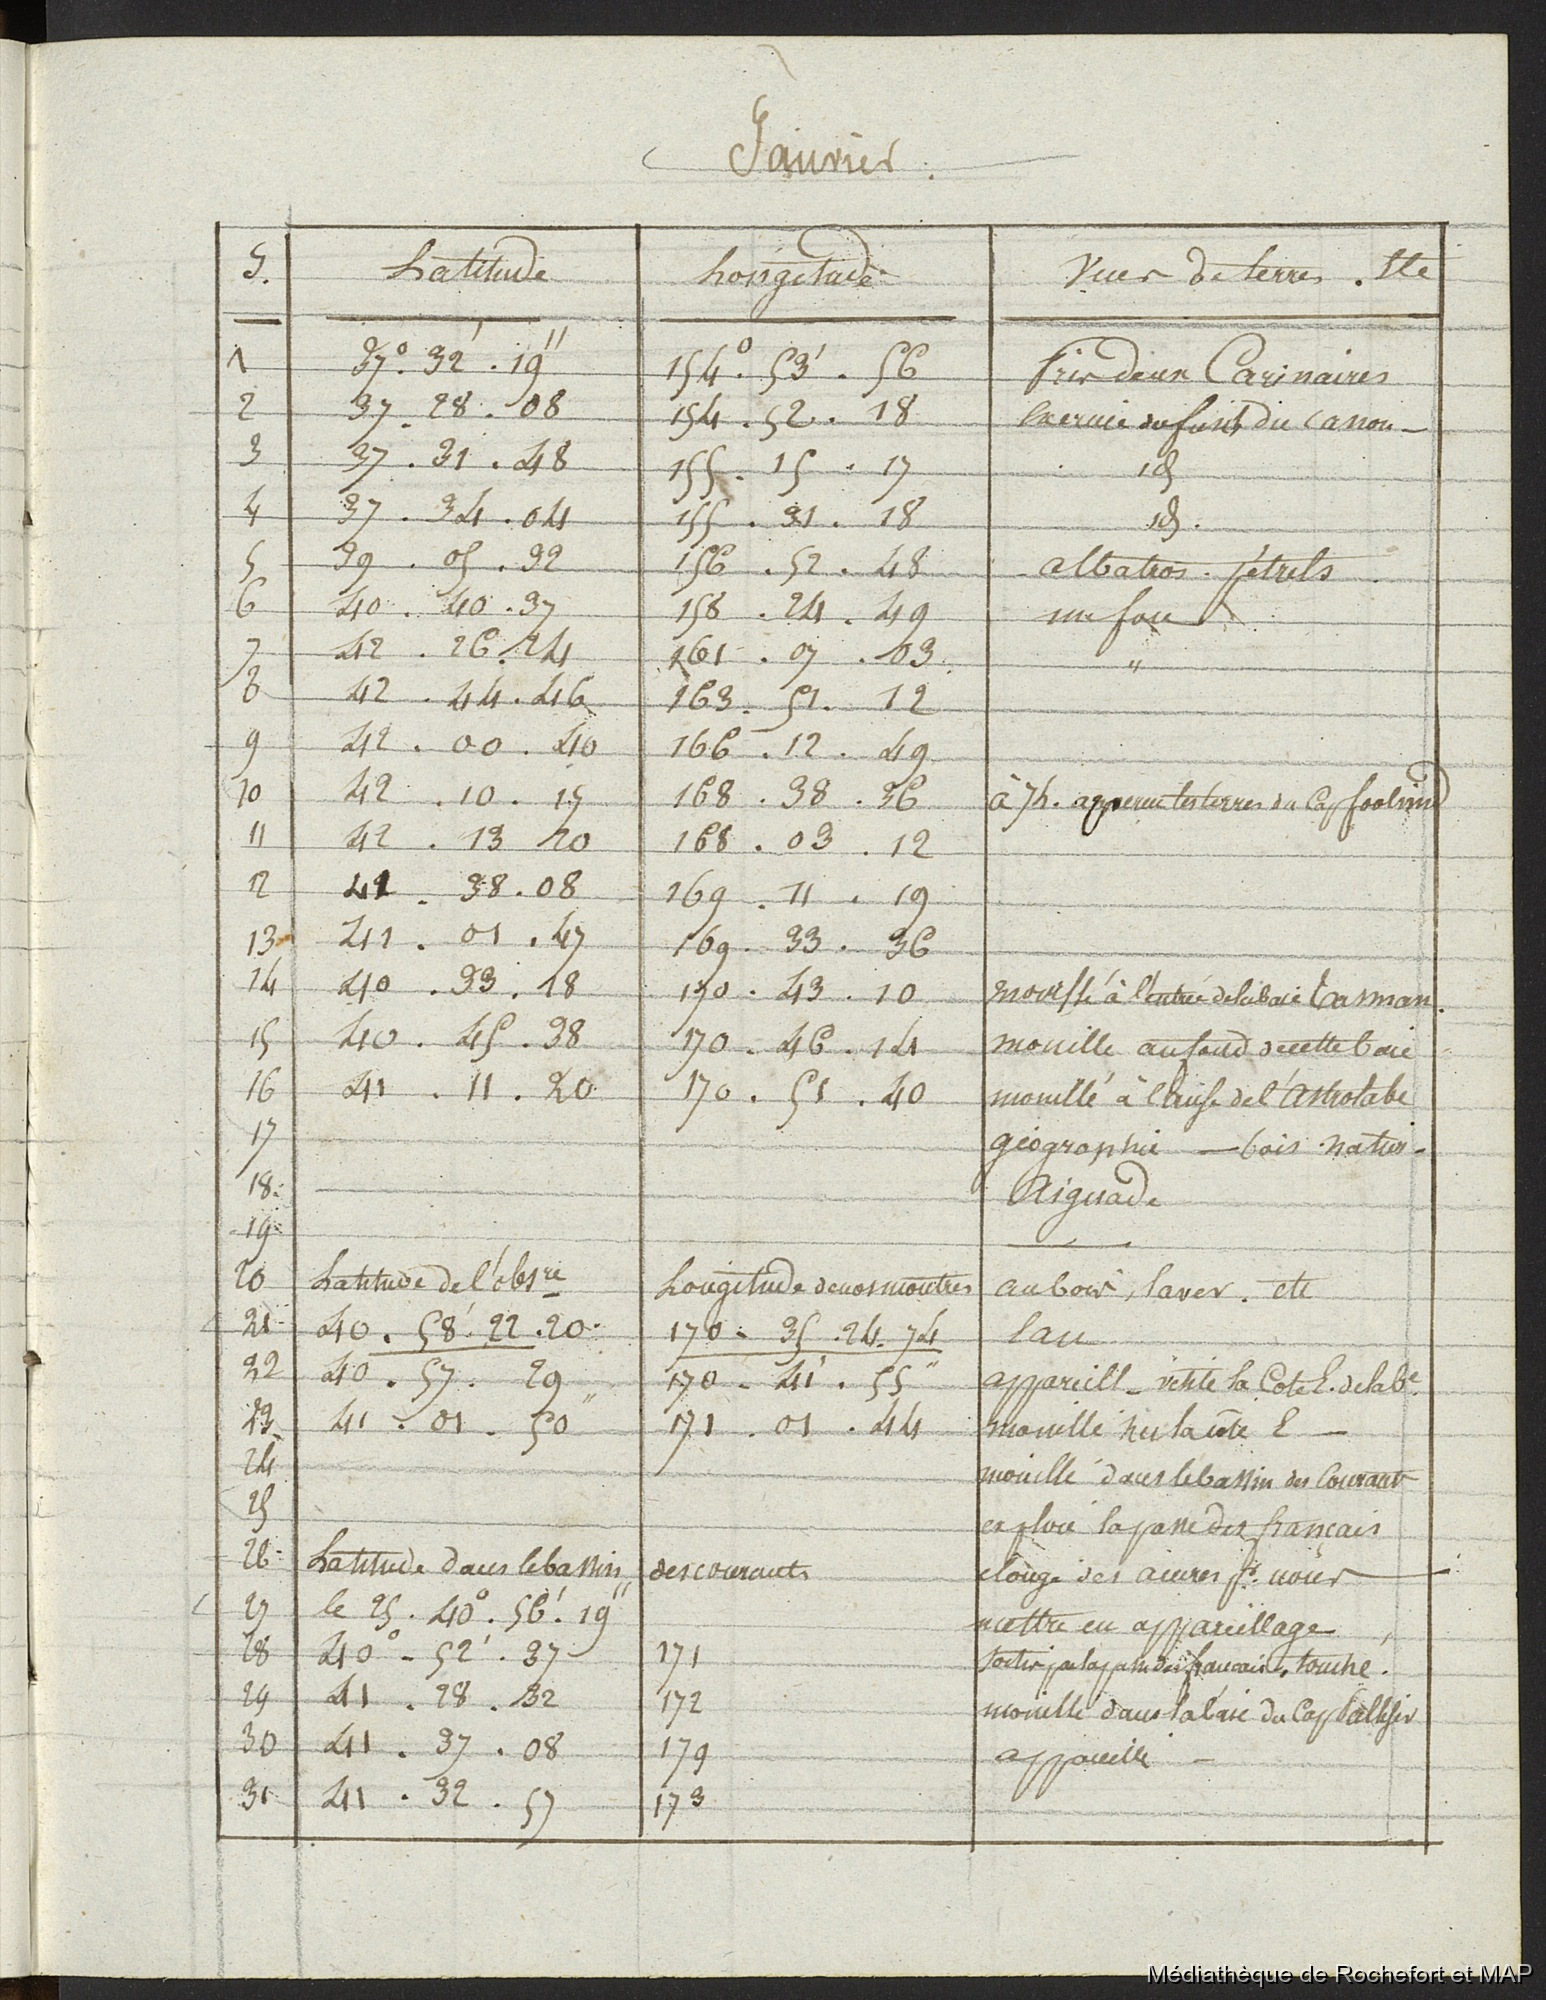 Janvier.
J. Latitude Longitude Vues de terres. Etc
1 37° . 32' . 19" 154° . 53' . 56 Pris deux Carinaires
2 37 . 28 . 08 154 . 52 . 18 Exercice du fusil, du canon —
3 37 . 31 . 48 155 . 15 . 17 id
4 37 . 34 . 04 155 . 31 . 18 id .
5 39 . 05 . 32 156 . 52 . 48 albatros . pétrels
6 40 . 40 . 37 158 . 24 . 49 un fou
7 42 . 26 . 24 161 . 07 . 03 "
8 42 . 44 . 46 163 . 51 . 12
9 42 . 00 . 40 166 . 12 . 49
10 42 . 10 . 15 168 . 38 . 36 à 7h. apperçu les terres du Cap foolwind
11 42 . 13 20 168 . 03 . 12
12 41 . 38 . 08 169 . 11 . 19
13 41 . 01 . 47 169 . 33 . 36
14 40 . 33 . 18 170 . 43 . 10 mouillé à l'entrée de la baie Tasman.
15 40 . 45 . 38 170 . 46 . 14 mouille au fond de cette baie
16 41 . 11 . 20 170 . 51 . 40 mouillé à l'anse de l'Astrolabe
17 géographie — bois . natur .
18 Aiguade
19
20 Latitude de l'obsre Longitude de nos montres au bois, laver . etc
21 40 . 58' . 22 . 20 170 . 35 . 24 . 74 Eau
22 40 . 57 . 29 170 . 41' . 55" appareill — visité la Côte E. de la be.
23 41 . 01 . 50" 171 . 01 . 44 mouillé sur la côte E —
24 mouillé dans le bassin des Courants
25 exploré la passe des français
26 Latitude dans le bassin des courants elongé des ancres pr. nous
27 le 25 . 40° . 56' . 19" mettre en appareillage
28 40° . 52' . 37 171 sortir par la passe des français, touché .
29 41 . 28 . 32 172 mouillé dans la baie du Cap Pallisir
30 41 . 37 . 08 179 appareillé —
31 41 . 32 . 57 173
Médiathèque de Rochefort et MAP